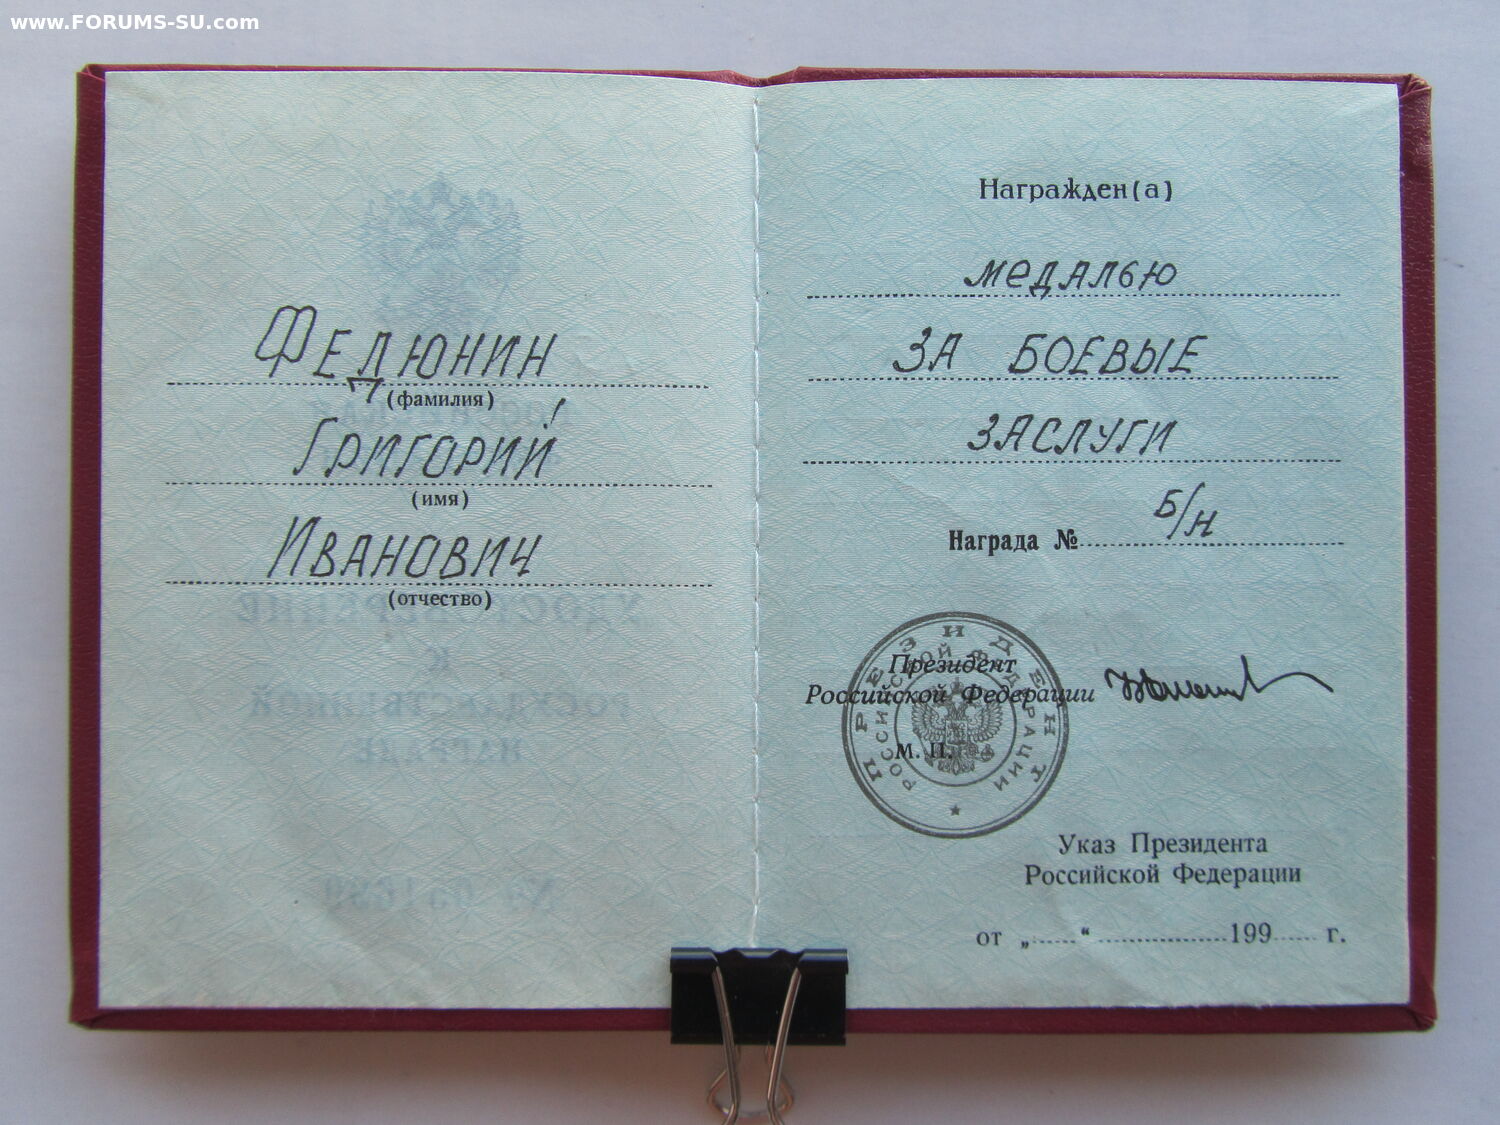 www.FORUMS-SU.com
Федюнин
(фамилия)
Григорий
(имя)
Иванович
(отчество)
Награжден(а)
медалью
За боевые
заслуги
Награда № Б/Н
Президент
Российской Федерации
М. П.
ПРЕЗИДЕНТ
РОССИЙСКОЙ ФЕДЕРАЦИИ
Указ Президента
Российской Федерации
от „......“ ..................199...... г.
УДОСТОВЕРЕНИЕ
К
ГОСУДАРСТВЕННОЙ
НАГРАДЕ